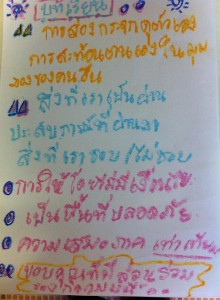 บทเรียน
การส่องกระจกดูตัวเอง
การสะท้อนตนเองในมุม
มองของคนอื่น
สิ่งที่เราเป็นผ่าน
ประสบการณ์ที่ผ่านมา
สิ่งที่เราชอบ/ไม่ชอบ
การให้โดยไม่มีเงื่อนไข
เป็นพื้นที่ปลอดภัย
ความเสมอภาค เท่าเทียม
ขอบคุณที่มีส่วนร่วม